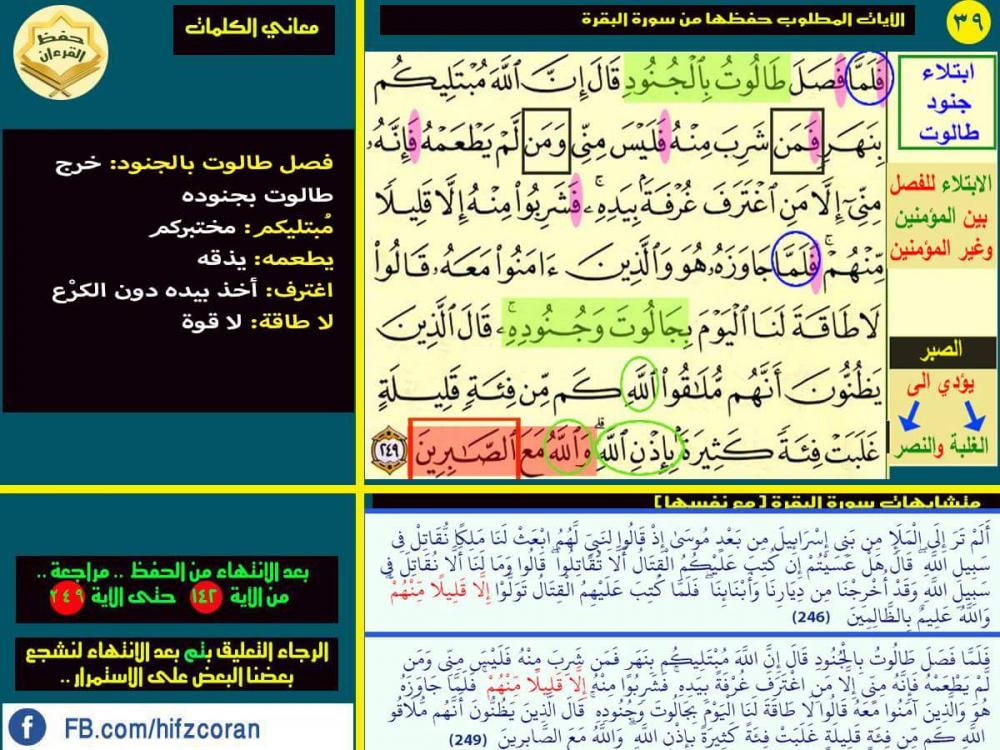 حفظ
القرءان
معاني الكلمات
فصل طالوت بالجنود: خرج
طالوت بجنوده
مُبتليكم: مختبركم
يطعمه: يذقه
اغترف: أخذ بيده دون الكرْع
لا طاقة: لا قوة
الايات المطلوب حفظها من سورة البقرة
٣٩
فَلَمَّا فَصَلَ طَالُوتُ بِٱلْجُنُودِ قَالَ إِنَّ ٱللَّهَ مُبْتَلِيكُم
بِنَهَرٍ فَمَن شَرِبَ مِنْهُ فَلَيْسَ مِنِّى وَمَن لَّمْ يَطْعَمْهُ فَإِنَّهُۥ
مِنِّىٓ إِلَّا مَنِ ٱغْتَرَفَ غُرْفَةًۢ بِيَدِهِۦ ۚ فَشَرِبُوا۟ مِنْهُ إِلَّا قَلِيلًا
مِّنْهُمْ ۚ فَلَمَّا جَاوَزَهُۥ هُوَ وَٱلَّذِينَ ءَامَنُوا۟ مَعَهُۥ قَالُوا۟
لَا طَاقَةَ لَنَا ٱلْيَوْمَ بِجَالُوتَ وَجُنُودِهِۦ ۚ قَالَ ٱلَّذِينَ
يَظُنُّونَ أَنَّهُم مُّلَٰقُوا۟ ٱللَّهِ كَم مِّن فِئَةٍ قَلِيلَةٍ
غَلَبَتْ فِئَةً كَثِيرَةًۢ بِإِذْنِ ٱللَّهِ ۗ وَٱللَّهُ مَعَ ٱلصَّٰبِرِينَ ٢٤٩
ابتلاء
جنود
طالوت
الابتلاء للفصل
بين المؤمنين
وغير المؤمنين
الصبر
يؤدي الى
الغلبة والنصر
متشابهات سورة البقرة [مع نفسها]
أَلَمْ تَرَ إِلَى الْمَلَإِ مِن بَنِي إِسْرَائِيلَ مِن بَعْدِ مُوسَىٰ إِذْ قَالُوا لِنَبِيٍّ لَّهُمُ ابْعَثْ لَنَا مَلِكًا نُّقَاتِلْ فِي
سَبِيلِ اللَّهِ ۖ قَالَ هَلْ عَسَيْتُمْ إِن كُتِبَ عَلَيْكُمُ الْقِتَالُ أَلَّا تُقَاتِلُوا ۖ قَالُوا وَمَا لَنَا أَلَّا نُقَاتِلَ فِي
سَبِيلِ اللَّهِ وَقَدْ أُخْرِجْنَا مِن دِيَارِنَا وَأَبْنَائِنَا ۖ فَلَمَّا كُتِبَ عَلَيْهِمُ الْقِتَالُ تَوَلَّوْا إِلَّا قَلِيلًا مِّنْهُمْ ۗ
وَاللَّهُ عَلِيمٌ بِالظَّالِمِينَ (246)
فَلَمَّا فَصَلَ طَالُوتُ بِالْجُنُودِ قَالَ إِنَّ اللَّهَ مُبْتَلِيكُم بِنَهَرٍ فَمَن شَرِبَ مِنْهُ فَلَيْسَ مِنِّي وَمَن
لَّمْ يَطْعَمْهُ فَإِنَّهُ مِنِّي إِلَّا مَنِ اغْتَرَفَ غُرْفَةً بِيَدِهِ ۚ فَشَرِبُوا مِنْهُ إِلَّا قَلِيلًا مِّنْهُمْ ۚ فَلَمَّا جَاوَزَهُ
هُوَ وَالَّذِينَ آمَنُوا مَعَهُ قَالُوا لَا طَاقَةَ لَنَا الْيَوْمَ بِجَالُوتَ وَجُنُودِهِ ۚ قَالَ الَّذِينَ يَظُنُّونَ أَنَّهُم مُّلَاقُو
اللَّهِ كَم مِّن فِئَةٍ قَلِيلَةٍ غَلَبَتْ فِئَةً كَثِيرَةً بِإِذْنِ اللَّهِ ۗ وَاللَّهُ مَعَ الصَّابِرِينَ (249)
بعد الانتهاء من الحفظ .. مراجعة ..
من الاية ١٤٢ حتى الاية ٢٤٩
الرجاء التعليق بتم بعد الانتهاء لنشجع
بعضنا البعض على الاستمرار ..
f FB.com/hifzcoran